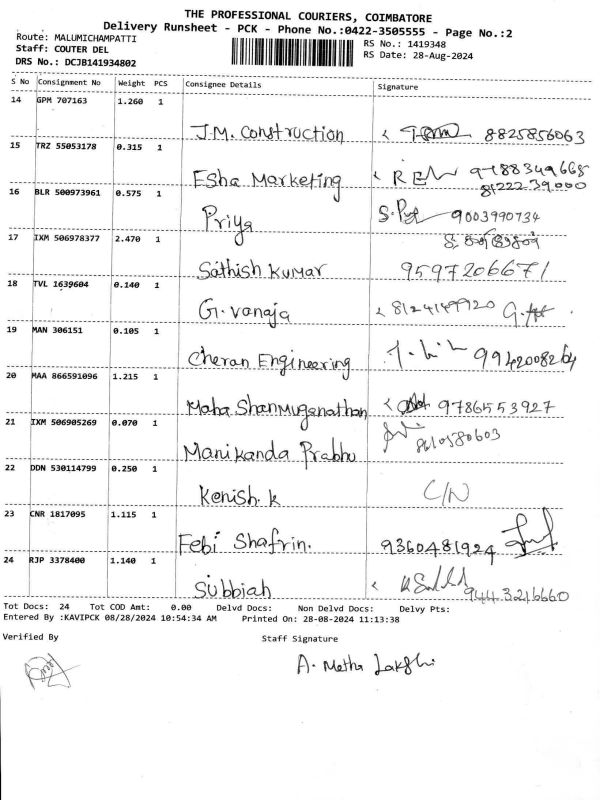 THE PROFESSIONAL COURIERS, COIMBATORE
Delivery Runsheet - PCK - Phone No.:0422-3505555 - Page No.:2
Route: MALUMICHAMPATTI
RS No.: 1419348
Staff: COUTER DEL
RS Date: 28-Aug-2024
DRS No.: DCJB141934802
S No Consignment No Weight PCS Consignee Details Signature
14 GPM 707163 1.260 1
J.M. Construction 8825856063
15 TRZ 55053178 0.315 1
Esha Marketing 9788349668
81222 39000
16 BLR 500973961 0.575 1
Priya 9003990734
17 IXM 506978377 2.470 1
Sathish Kumar 9597206671
18 TVL 1639604 0.140 1
G. vanaja 8124149920
19 MAN 306151 0.105 1
Cheran Engineering 9942008264
20 MAA 866591096 1.215 1
Maha Shanmuganathan 9786553927
21 IXM 506905269 0.070 1
Manikanda Prabhu 8610580603
22 DDN 530114799 0.250 1
Kenish. k C/N
23 CNR 1817095 1.115 1
Febi Shafrin. 9360481924
24 RJP 3378400 1.140 1
Subbiah 9443216660
Tot Docs: 24 Tot COD Amt: 0.00 Delvd Docs: Non Delvd Docs: Delvy Pts:
Entered By :KAVIPCK 08/28/2024 10:54:34 AM Printed On: 28-08-2024 11:13:38
Verified By Staff Signature
A. Metha Lakshi